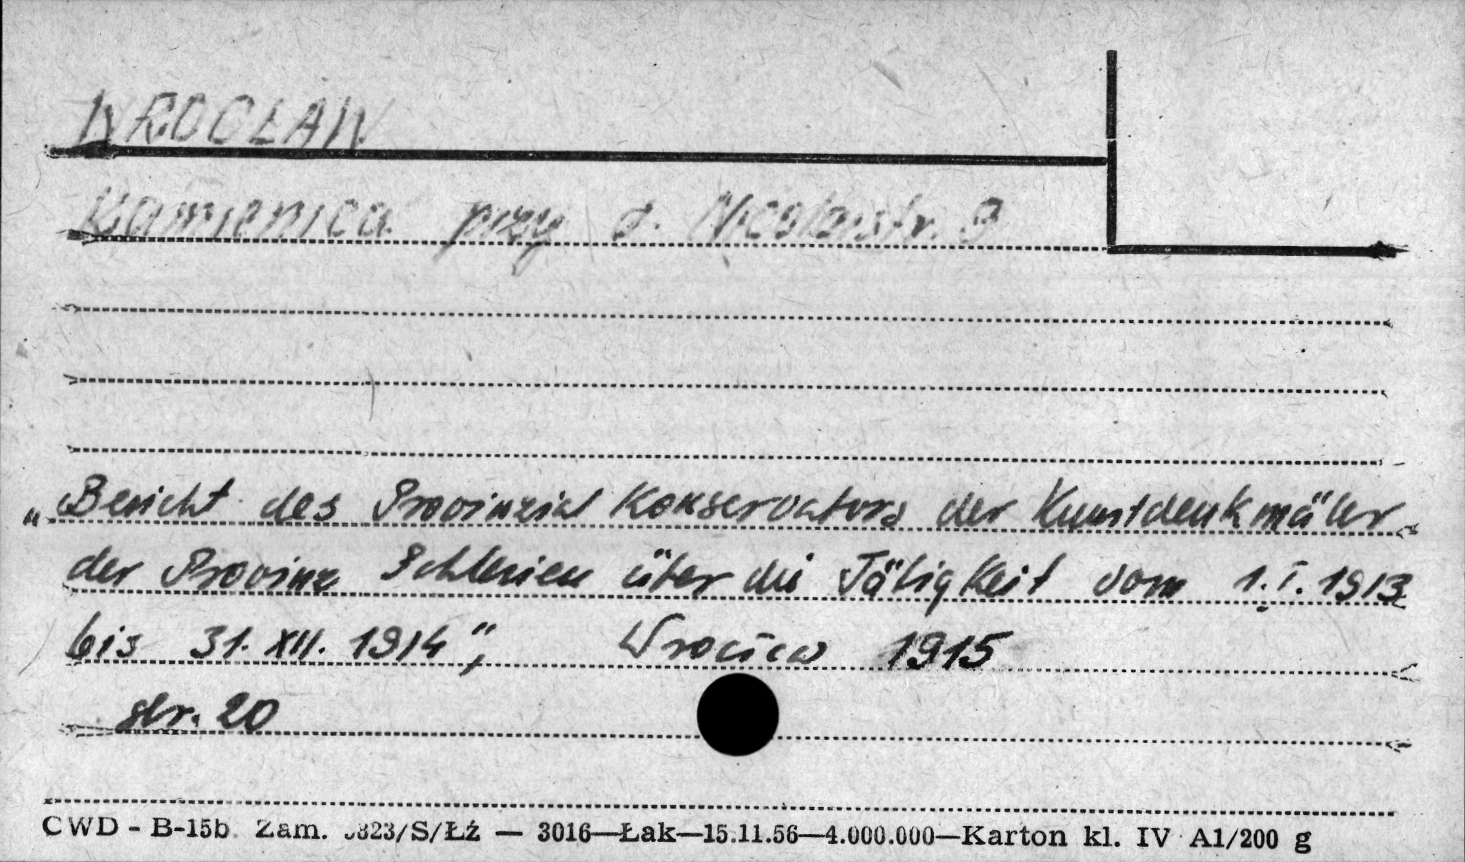 WROCŁAW
Kamienica przy d. Nicolaistr. 9
„Bericht des Provinzial Konservators der Kunstdenkmäler
der Provinz Schlesien über die Tätigkeit vom 1.I.1913
bis 31.XII.1914“, Wrocław 1915
str. 20
CWD - B-15b Zam. 3823/S/Łź — 3016—Łak—15.11.56—4.000.000—Karton kl. IV A1/200 g